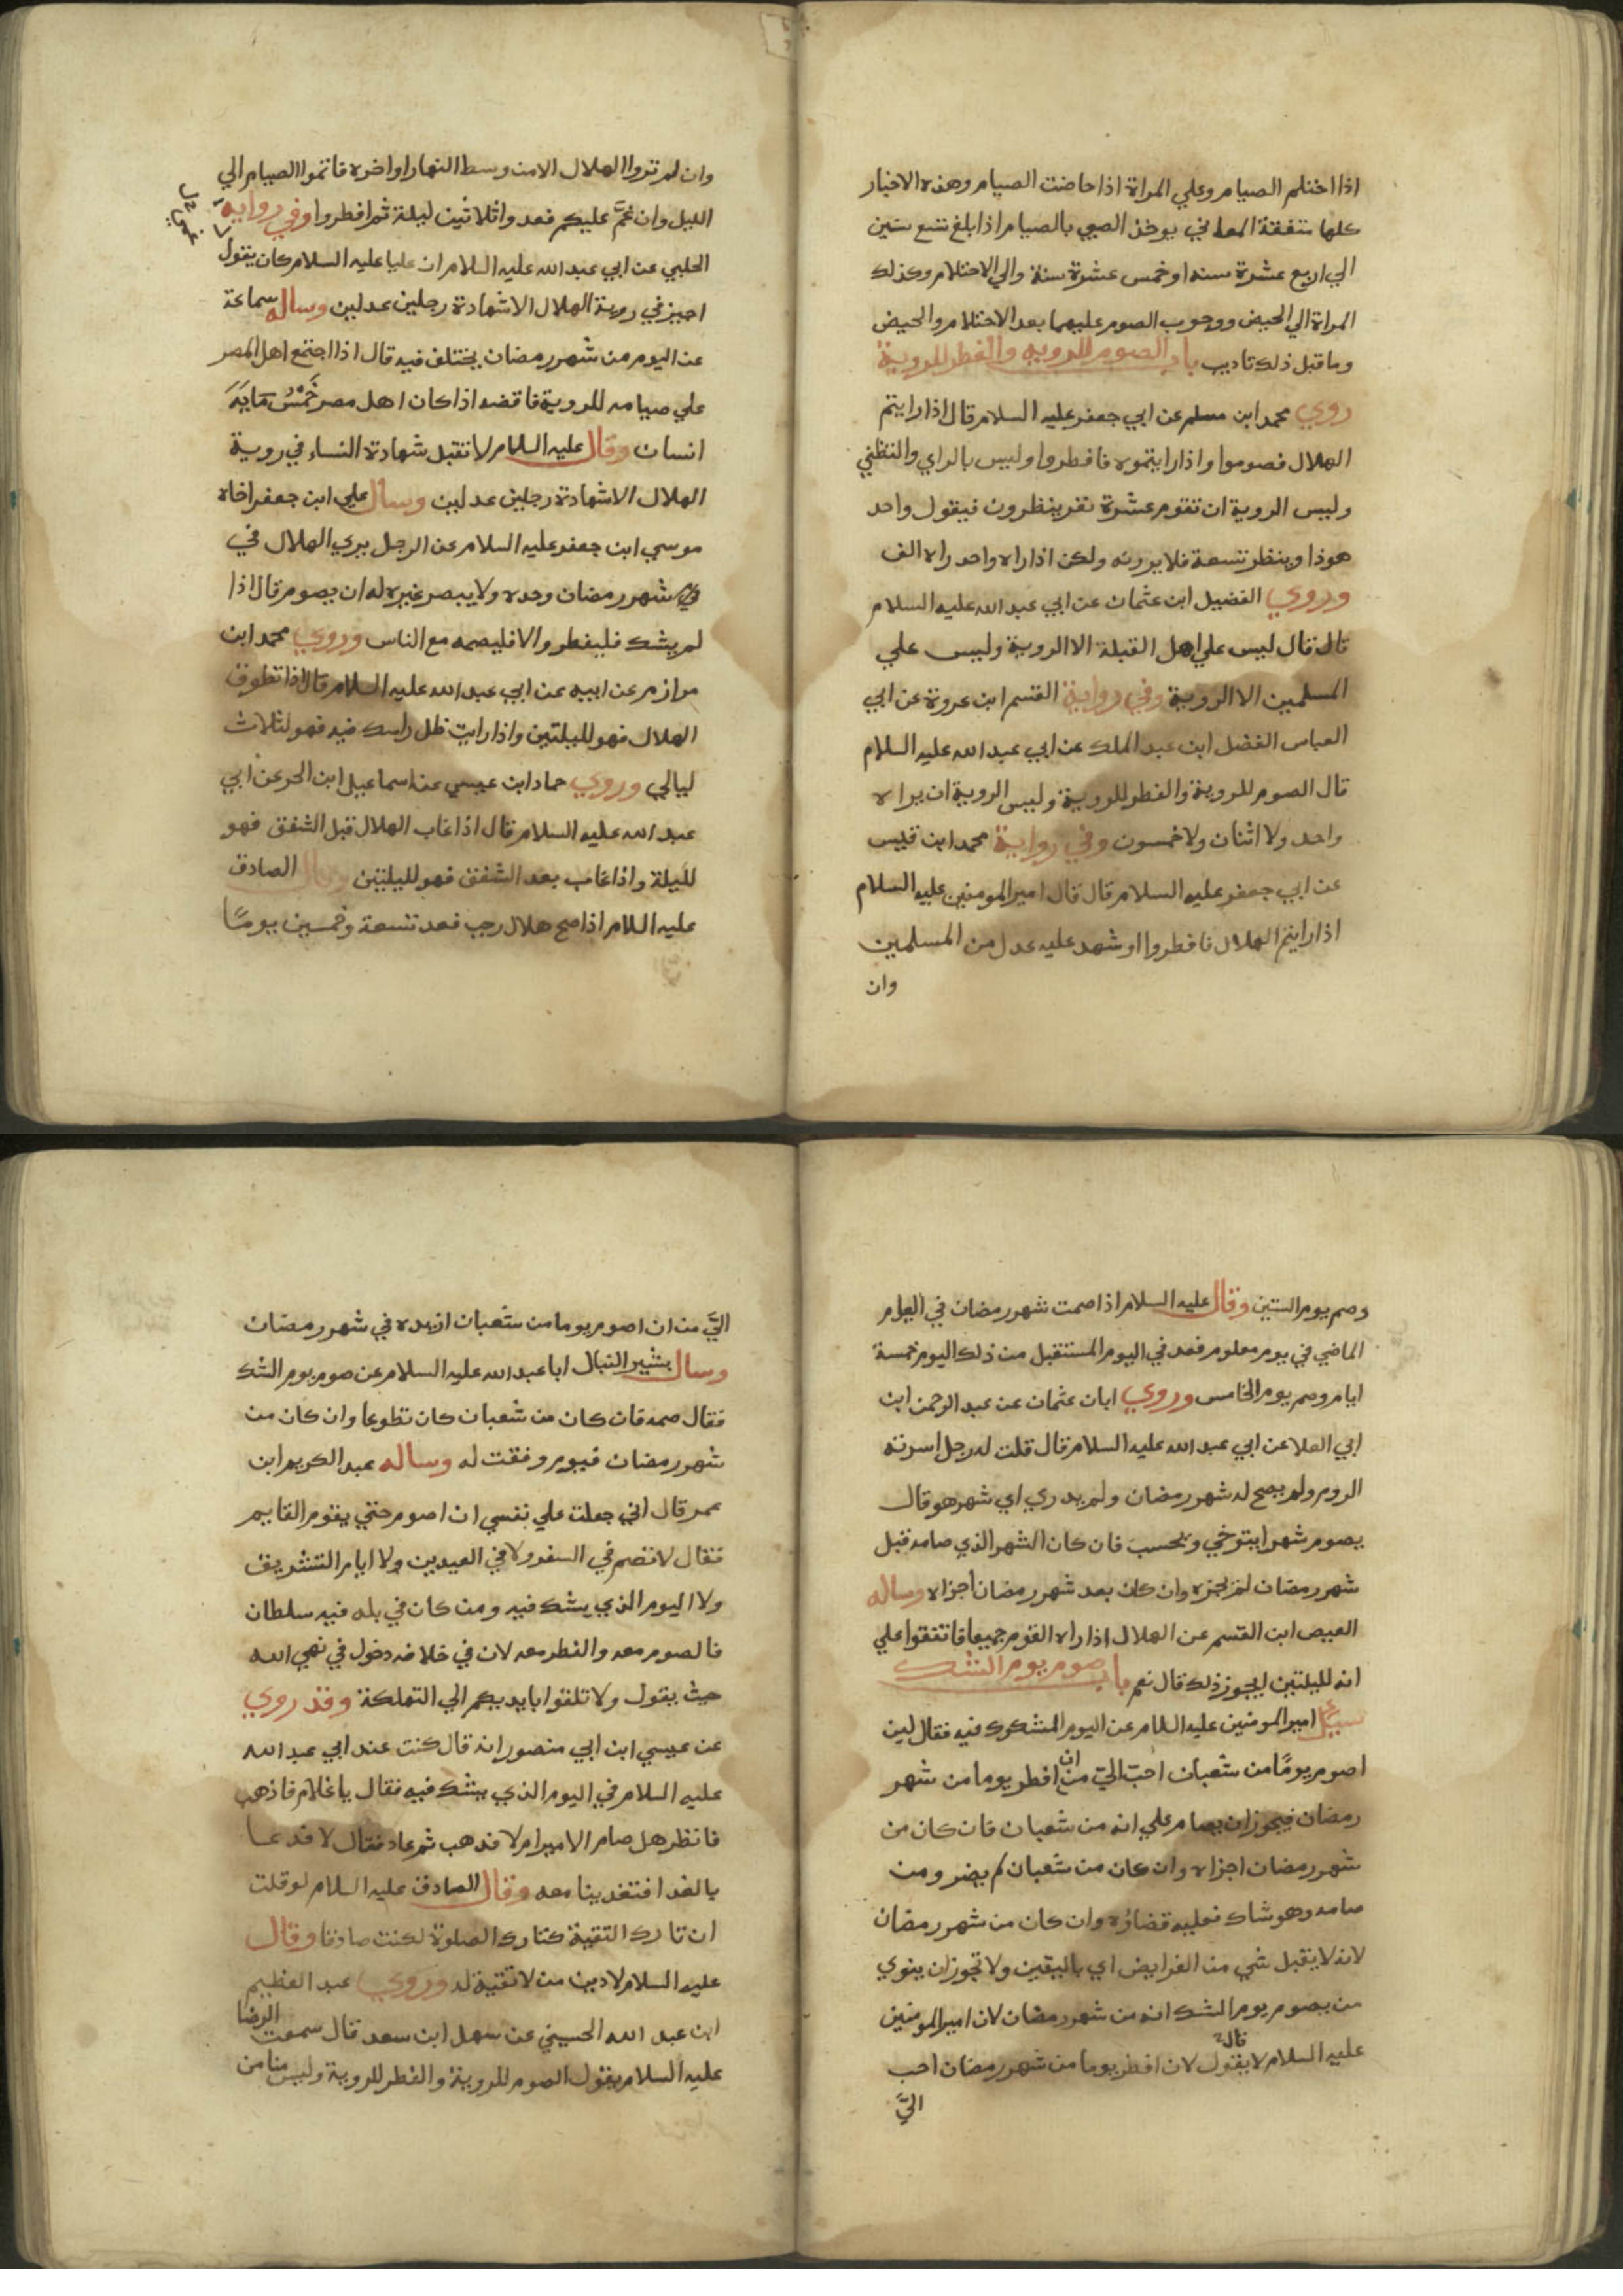 اذا احتلم الصيام وعلي المراة اذا حاضت الصيام وهذه الاخبار
كلها متفقة المعاني يوخذ الصبي بالصيام اذا بلغ تسع سنين
الي اربع عشرة سنه او خمس عشرة سنة والي الاحتلام وكذلك
المراة الي الحيض ووجوب الصوم عليهما بعد الاحتلام والحيض
وما قبل ذلك تاديب باب الصوم للروية والفطر للروية
روي محمد ابن مسلم عن ابي جعفر عليه السلام قال اذا رايتم
الهلال فصوموا واذا رايتموه فافطروا وليس بالراي والتظني
وليس الروية ان تقوم عشرة نفر ينظرون فيقول واحد
هوذا وينظر تسعة فلا يرونه ولكن اذا راه واحد راه الف
وروي الفضيل ابن عثمان عن ابي عبد الله عليه السلام
قال قال ليس علي اهل القبلة الا الروية وليس علي
المسلمين الا الروية وفي رواية القسم ابن عروة عن ابي
العباس الفضل ابن عبد الملك عن ابي عبد الله عليه السلام
قال الصوم للروية والفطر للروية وليس الروية ان يراه
واحد ولا اثنان ولا خمسون وفي رواية محمد ابن قيس
عن ابي جعفر عليه السلام قال قال امير المومنين عليه السلام
اذا رايتم الهلال فافطروا او شهد عليه عدل من المسلمين
وان
وان لم تروا الهلال الا من وسط النهار او اخره فاتموا الصيام الي
الليل وان غمَّ عليكم فعدوا ثلاثين ليلة ثم افطروا وفي رواية
الحلبي عن ابي عبد الله عليه السلام ان عليا عليه السلام كان يقول
اجيز في روية الهلال الا شهادة رجلين عدلين وساله سماعة
عن اليوم من شهر رمضان يختلف فيه قال اذا اجتمع اهل المصر
علي صيامه للروية فاقضه اذا كان اهل مصر خَمْسُ مَايَةِ
انسان وقال عليه السلام لا تقبل شهادة النساء في روية
الهلال الا شهادة رجلين عدلين وسال علي ابن جعفر اخاه
موسي ابن جعفر عليه السلام عن الرجل يري الهلال في
شهر رمضان وحده ولا يبصر غيره له ان يصوم قال اذا
لم يشك فليفطر والا فليصمه مع الناس وروي محمد ابن
مرازم عن ابيه عن ابي عبد الله عليه السلام قال اذا تطوق
الهلال فهو لليلتين واذا رايت ظل راسك فيه فهو لثلاث
ليالي وروي حماد ابن عيسي عن اسماعيل ابن الحر عن ابي
عبد الله عليه السلام قال اذا غاب الهلال قبل الشفق فهو
لليلة واذا غاب بعد الشفق فهو لليلتين وقال الصادق
عليه السلام اذا صح هلال رجب فعد تسعة وخمسين يومًا
وصم يوم الستين وقال عليه السلام اذا صمت شهر رمضان في العام
الماضي في يوم معلوم فعد في اليوم المستقبل من ذلك اليوم خمسة
ايام وصم يوم الخامس وروي ابان عثمان عن عبد الرحمن ابن
ابي العلا عن ابي عبد الله عليه السلام قال قلت له رجل اسرته
الروم ولم يصح له شهر رمضان ولم يدري اي شهر هو قال
يصوم شهرا يتوخي ويحسب فان كان الشهر الذي صامه قبل
شهر رمضان لم يجزه وان كان بعد شهر رمضان اجزاه وساله
العيص ابن القسم عن الهلال اذا راه القوم جميعا فاتفقوا علي
انه لليلتين ايجوز ذلك قال نعم باب صوم يوم الشك
سيل امير المومنين عليه السلام عن اليوم المشكوك فيه فقال لين
اصوم يومًا من شعبان احبّ اليّ من ان افطر يوما من شهر
رمضان فيجوز ان يصام علي انه من شعبان فان كان من
شهر رمضان اجزاه وان كان من شعبان لم يضر ومن
صامه وهو شاك فعليه قضاؤه وان كان من شهر رمضان
لانه لا يقبل شي من الفرايض اي باليقين ولا تجوز ان ينوي
من يصوم يوم الشك انه من شهر رمضان لان امير المومنين
عليه السلام قال لا يقول لان افطر يوما من شهر رمضان احب
اليَّ
اليَّ من ان اصوم يوما من شعبان ازيده في شهر رمضان
وسال بشير النبال ابا عبد الله عليه السلام عن صوم يوم الشك
فقال صمه فان كان من شعبان كان تطوعا وان كان من
شهر رمضان فيوم وفقت له وساله عبد الكريم ابن
عمر قال اني جعلت علي نفسي ان اصوم حتي يقوم القايم
فقال لا تصم في السفر ولا في العيدين ولا ايام التشريق
ولا اليوم الذي يشك فيه ومن كان في بلد فيه سلطان
فالصوم معه والفطر معه لان في خلافه دخول في نهي الله
حيث يقول ولا تلقوا بايديكم الي التهلكة وقد روي
عن عيسي ابن ابي منصور انه قال كنت عند ابي عبد الله
عليه السلام في اليوم الذي يشك فيه فقال يا غلام فاذهب
فانظر هل صام الامير ام لا فذهب ثم عاد فقال لا فدعا
بالغدا فتغدينا معه وقال الصادق عليه السلام لو قلت
ان تارك التقية كتارك الصلوة لكنت صادقا وقال
عليه السلام لا دين من لا تقية له وروي عبد العظيم
ابن عبد الله الحسيني عن سهل ابن سعد قال سمعت الرضا
عليه السلام يقول الصوم للروية والفطر للروية وليس منا من